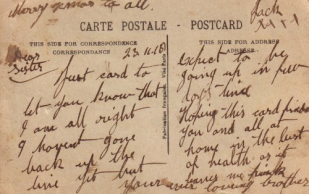 Merry Xmas to all.
Jack
CARTE POSTALE - POSTCARD
THIS SIDE FOR CORRESPONDENCE
CORRESPONDANCE
THIS SIDE FOR ADDRESS
23.11.18
Dear
Sister
Just card to
let you know that
I am all right
I havent gone
back up the
line yet but
expect to be
going up in few
days time
Hoping this card finds
you and all at
home in the best
of health as it
leaves me fr
Your ever loving brother